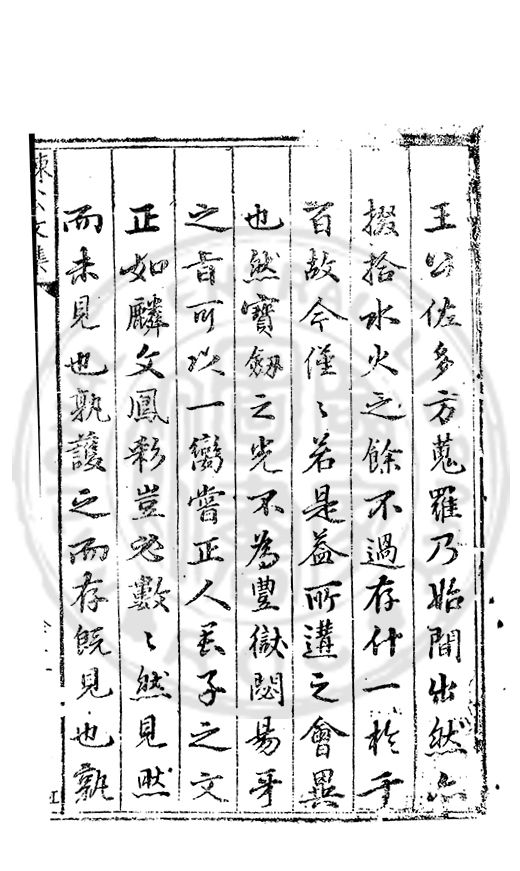 王公佐多方蒐羅乃始間出然亦
掇拾水火之餘不過存什一於千
百故今僅〻若是蓋所遘之會異
也然寶劔之光不為豐獄閟易牙
之旨可以一臠嘗正人君子之文
正如麟文鳳彩豈必數〻然見㸃
而未見也孰護之而存旣見也孰
陳公文集